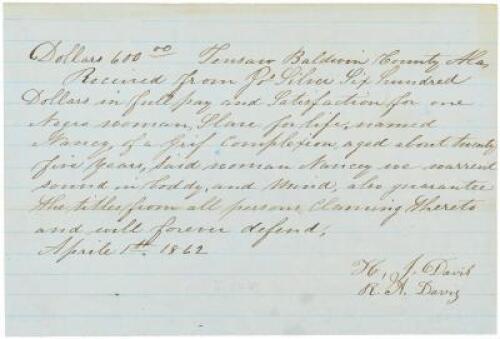 Dollars 600 00 Tensaw Baldwin County Ala,
Received from Jos Silver Six hundred
Dollars in full pay and Satisfaction for one
Negro woman, Slave for life, named
Nancy, of a grif Complexion, aged about twenty
five years, said woman Nancy we warrent
sound in boddy, and mind, also guarantee
the titles from all persons claming thereto
and will forever defend,
Aprile 1th 1862
H, J. Davis
R. A. Davis